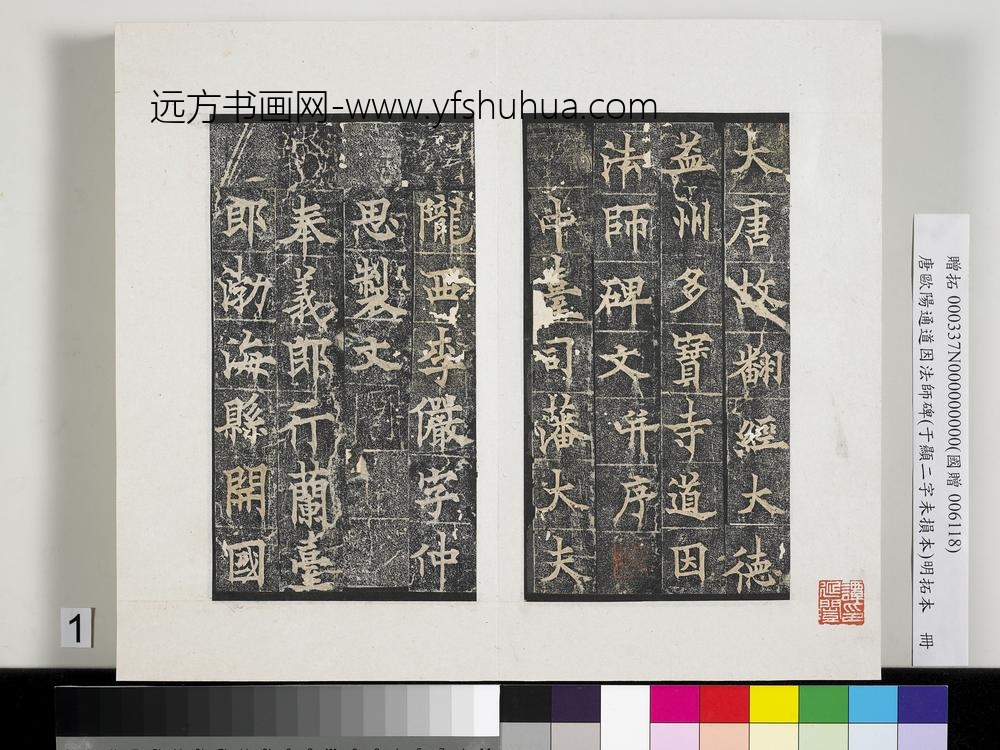 远方书画网-www.yfshuhua.com
大唐故翻經大德
益州多寶寺道因
法師碑文并序
中臺司藩大夫
隴西李儼字仲
思製文
奉義郎行蘭臺
郎渤海縣開國
贈拓 000337N000000000(國贈 006118)
唐歐陽通道因法師碑(于顯二字未損本)明拓本 冊
1